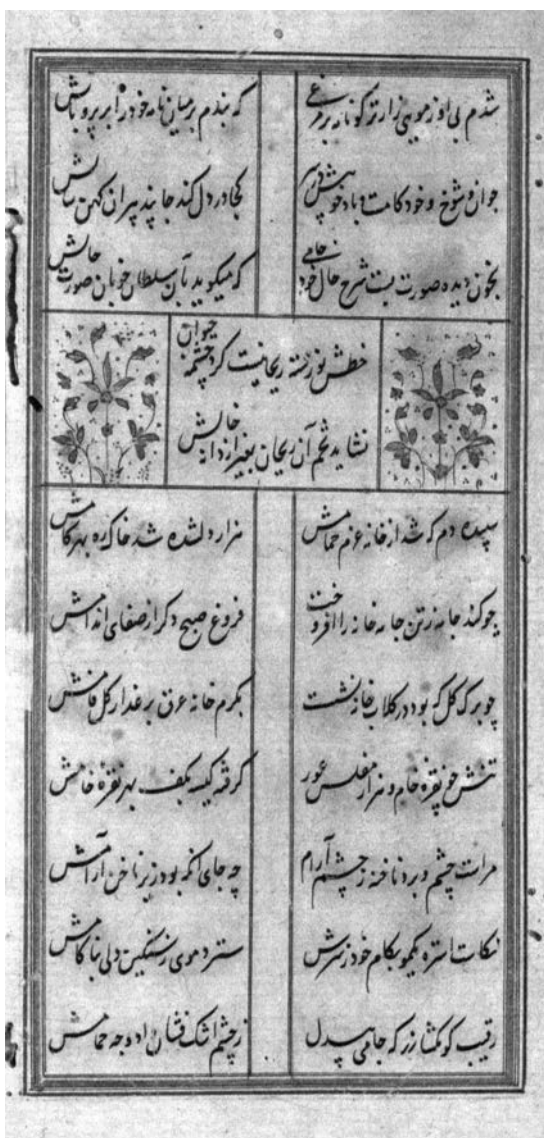 شدم بی او ز مویی زارتر کو نامه بر مرغی که بندم بر میان نامه خود را بر پر و بالش
جوان و شوخ و خود کامست و باد خویش کجا در دل کند جا پند پیران کهن سالش
بخون دیده صورت بست شرح حال خود جامی که میگوید بآن سلطان خوبان صورت حالش
خطش نورسته ریحانیست گرد چشمه حیوان
نشاید تخم آن ریحان بغیر از دانه خالش
سپیده دم که شد از خانه عزم حمامش هزار دلشده شد خاک ره بهر کامش
چو کند جامه ز تن جامه خانه را افروخت فروغ صبح دگر از صفای اندامش
چو برگ گل که بود در گلاب خانه نشست بگرم خانه عرق بر عذار گل فامش
تنش چو نقره خام و هزار مفلس عور گرفته کیسه بکف بهر نقره خامش
مراست چشم و برد ناخنه ز چشم آرام چه جای آنکه بود زیر ناخن آرامش
نکاست استره یکمو بکام خود ز سرش سترد موی ز سنگین دلی بنا کامش
رقیب کو مگشا زر که جامی بیدل ز چشم اشک فشان داد وجه حمامش